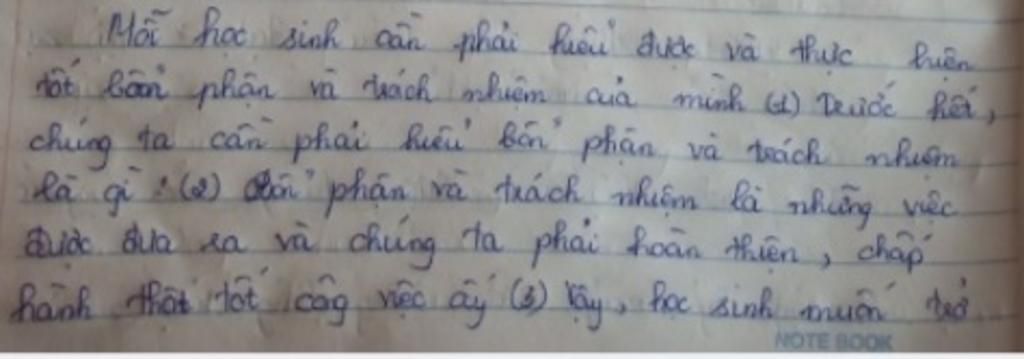 Mỗi học sinh cần phải hiểu được và thực hiện
tốt bổn phận và trách nhiệm của mình (1) Trước hết,
chúng ta cần phải hiểu bổn phận và trách nhiệm
là gì? (2) Bổn phận và trách nhiệm là những việc
được đưa ra và chúng ta phải hoàn thiện, chấp
hành thật tốt côg việc ấy (3) Vậy, học sinh muốn trở
NOTE BOOK